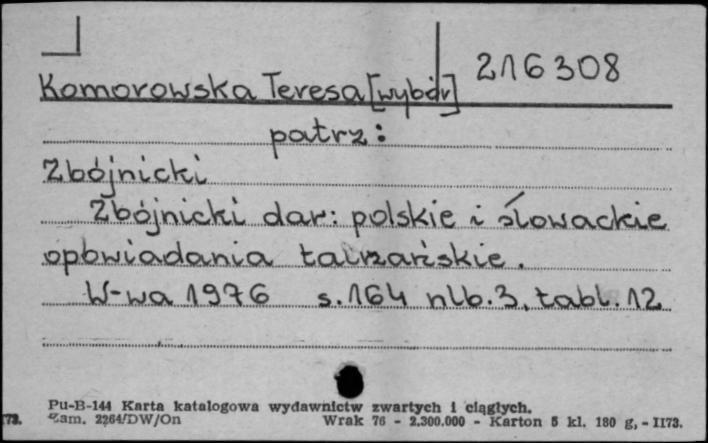 216308
Komorowska Teresa [wybór]
patrz:
Zbójnicki
Zbójnicki dar: polskie i słowackie
opowiadania tatrzańskie.
W-wa 1976 s.164 nlb.3, tabl.12
Pu-B-144 Karta katalogowa wydawnictw zwartych i ciągłych.
73. Zam. 2264/DW/On Wrak 76 - 2.300.000 - Karton 5 kl. 180 g, - II73.